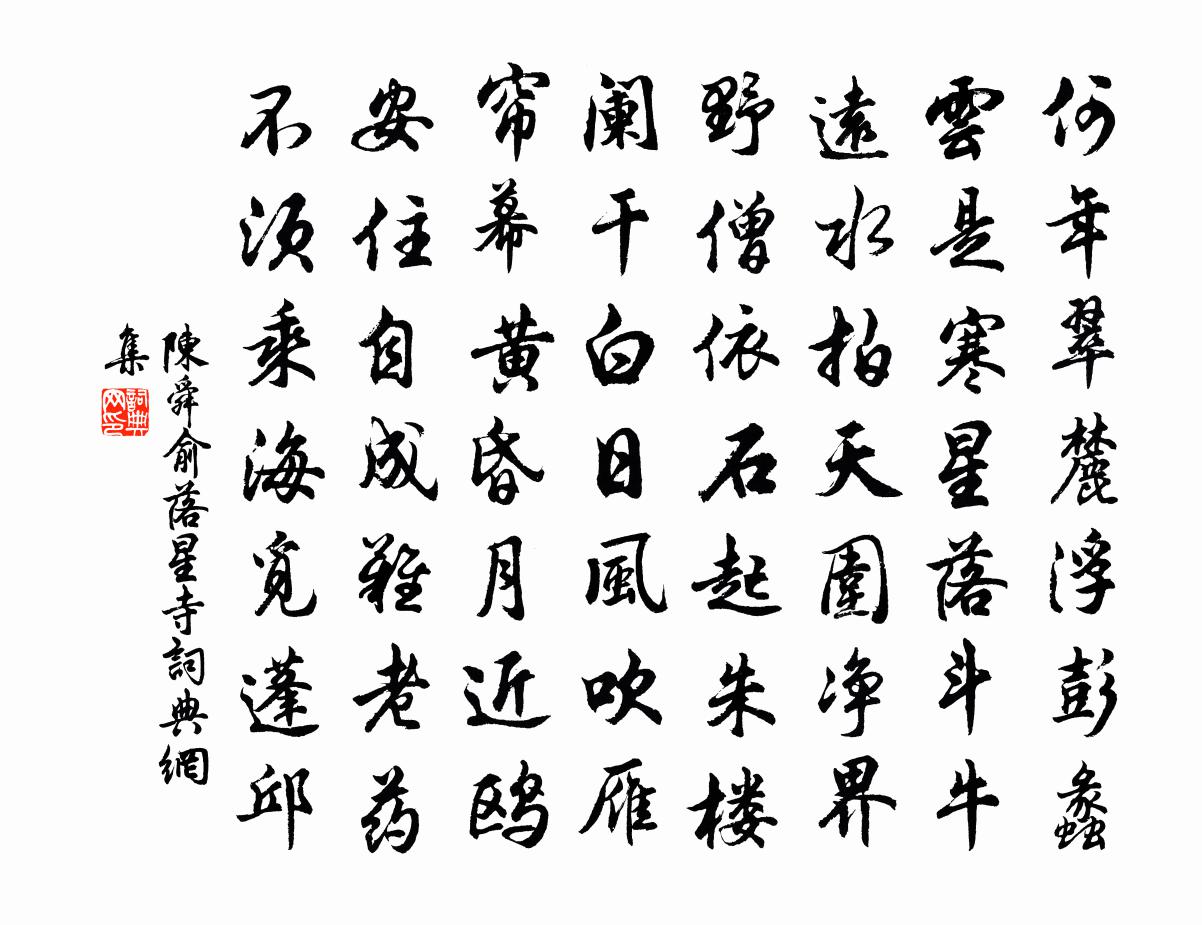 何年翠麓浮彭蠡
雲是寒星落斗牛
遠水拍天圍净界
野僧依石起朱楼
阑干白日風吹雁
帘幕黄昏月近鸥
安住自成難老药
不须乘海覓蓬邱
陳舜俞落星寺詞典網
集
詞典网印